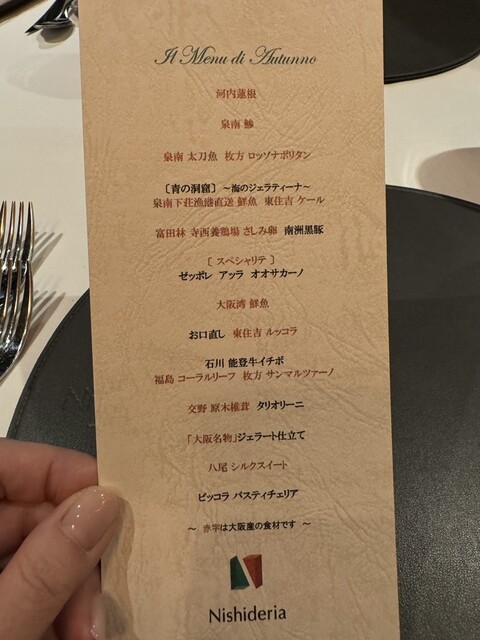 Il Menu di Autunno
河内蓮根
泉南 鯵
泉南 太刀魚 枚方 ロッソナポリタン
〔青の洞窟〕 ～海のジェラティーナ～
泉南下荘漁港直送 鮮魚 東住吉 ケール
富田林 寺西養鶏場 さしみ卵 南洲黒豚
〔 スペシャリテ 〕
ゼッポレ アッラ オオサカーノ
大阪湾 鮮魚
お口直し 東住吉 ルッコラ
石川 能登牛イチボ
福島 コーラルリーフ 枚方 サンマルツァーノ
交野 原木椎茸 タリオリーニ
「大阪名物」ジェラート仕立て
八尾 シルクスイート
ピッコラ パスティチェリア
～ 赤字は大阪産の食材です ～
Nishideria